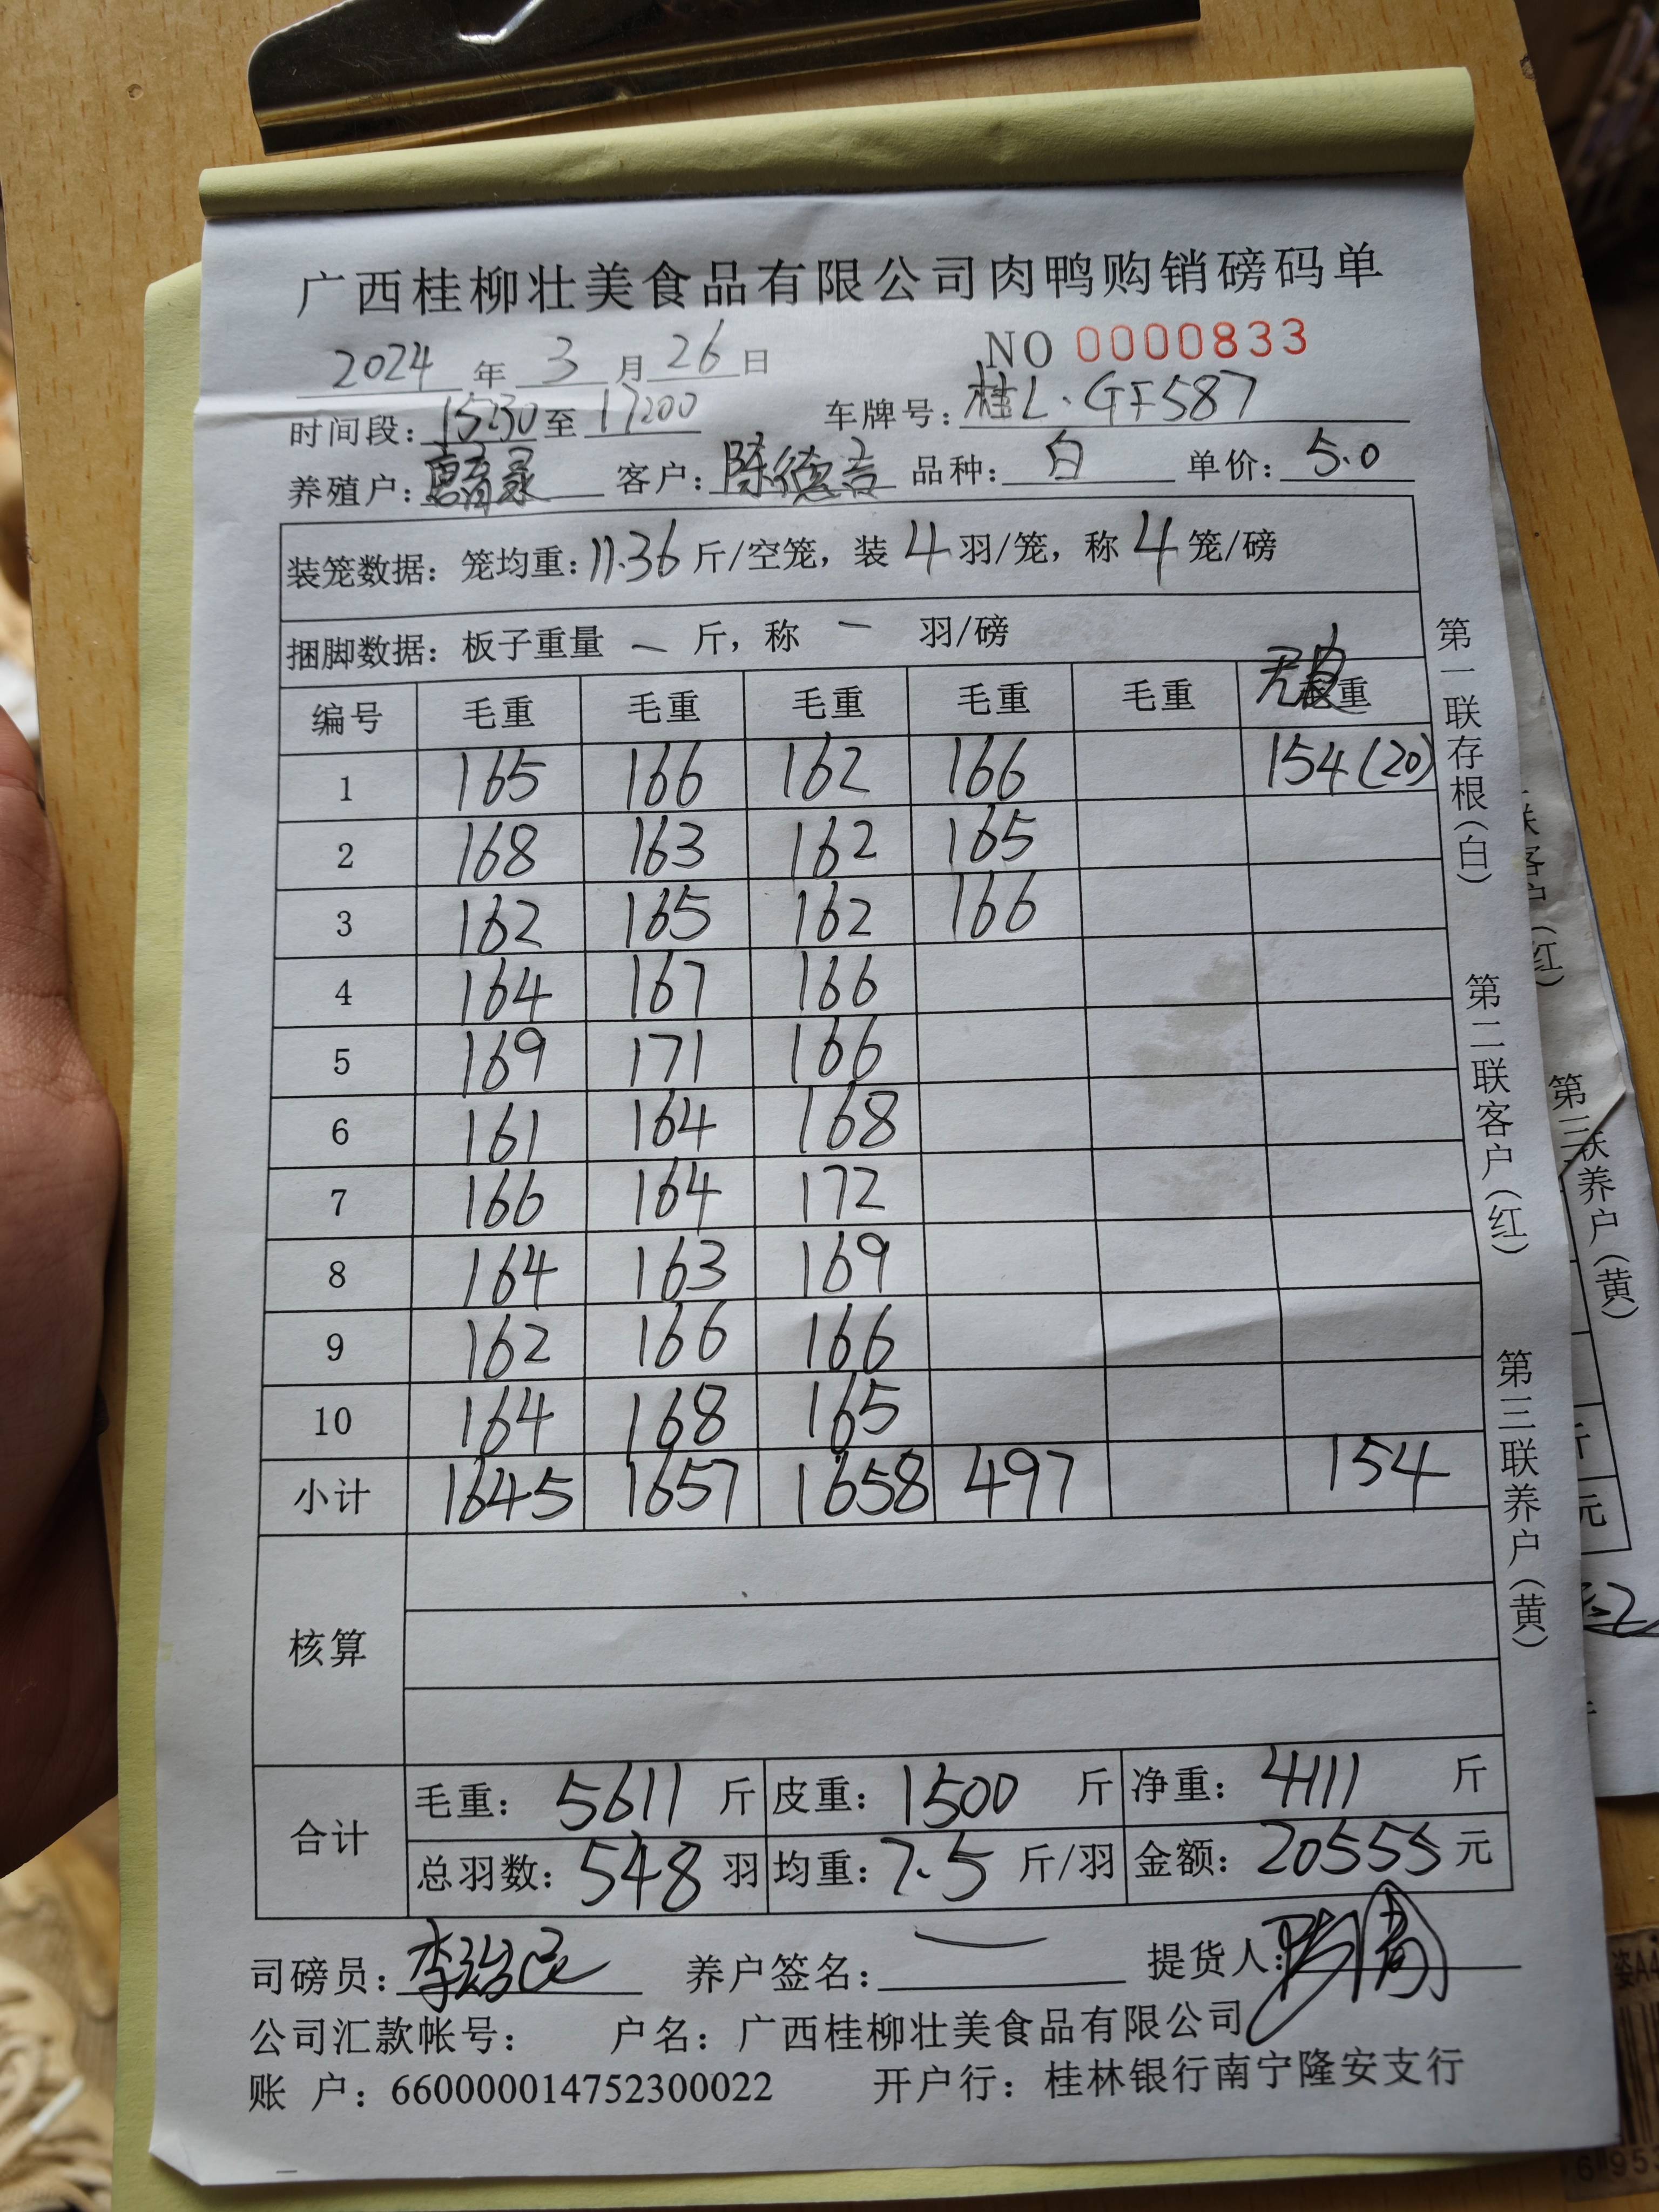 广西桂柳壮美食品有限公司肉鸭购销磅码单
2024 年 3 月 26 日 NO 0000833
时间段: 15:30 至 17:00 车牌号: 桂L·GF587
养殖户: 客户: 陈德吉 品种: 白 单价: 5.0
装笼数据: 笼均重: 11.36 斤/空笼, 装 4 羽/笼, 称 4 笼/磅
捆脚数据: 板子重量 — 斤, 称 — 羽/磅
编号 毛重 毛重 毛重 毛重 毛重 重
1 165 166 162 166 154(20)
2 168 163 162 165
3 162 165 162 166
4 164 167 166
5 169 171 166
6 161 164 168
7 166 164 172
8 164 163 169
9 162 166 166
10 164 168 165
小计 1645 1657 1658 497 154
核算
合计 毛重: 5611 斤 皮重: 1500 斤 净重: 4111 斤
总羽数: 548 羽 均重: 7.5 斤/羽 金额: 20555 元
司磅员: 养户签名: — 提货人:
公司汇款帐号: 户名: 广西桂柳壮美食品有限公司
账 户: 660000014752300022 开户行: 桂林银行南宁隆安支行
第一联存根(白)
第二联客户(红)
第三联养户(黄)
第三联养户(黄)
元